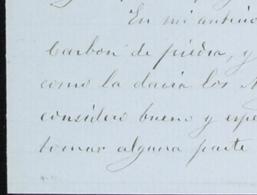 En mi anterio
carbon de piedra, y
como la dacia los
considero bueno y espe
tomar alguna parte